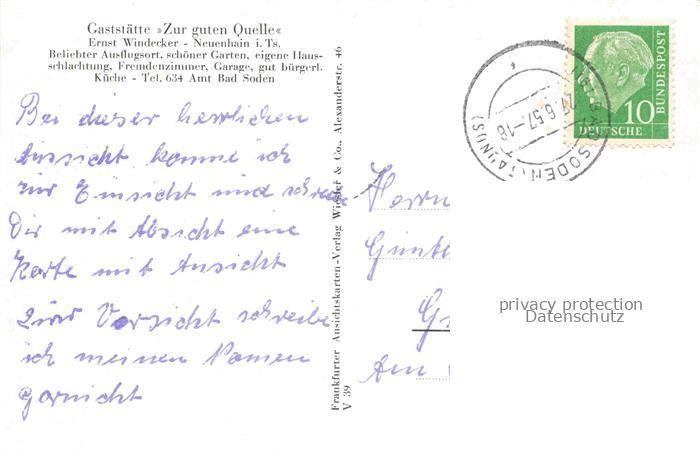 Gaststätte »Zur guten Quelle«
Ernst Windecker - Neuenhain i. Ts.
Beliebter Ausflugsort, schöner Garten, eigene Haus-
schlachtung, Fremdenzimmer, Garage, gut bürgerl.
Küche - Tel. 634 Amt Bad Soden
Bei dieser herrlichen
Aussicht komme ich
zur Einsicht und schreibe
Dir mit Absicht eine
Karte mit Ansicht
zur Vorsicht schreibe
ich meinen Namen
garnicht
Frankfurter Ansichtskarten-Verlag Wiesler & Co., Alexanderstr. 46
V 39
BAD SODEN (TAUNUS)
27.6.57-18
10
DEUTSCHE
BUNDESPOST
Herrn
Günt
G
Am
privacy protection
Datenschutz